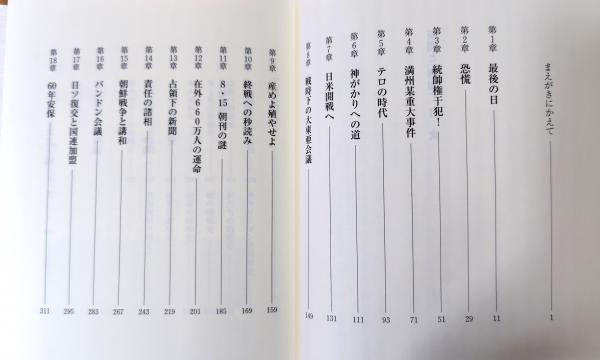 まえがきにかえて 1
第1章 最後の日 11
第2章 恐慌 29
第3章 統帥権干犯！ 51
第4章 満州某重大事件 71
第5章 テロの時代 93
第6章 神がかりへの道 111
第7章 日米開戦へ 131
第8章 戦時下の大東亜会議 149
第9章 産めよ殖やせよ 159
第10章 終戦への秒読み 169
第11章 8・15朝刊の謎 185
第12章 在外660万人の運命 201
第13章 占領下の新聞 219
第14章 責任の諸相 243
第15章 朝鮮戦争と講和 267
第16章 バンドン会議 283
第17章 日ソ復交と国連加盟 295
第18章 60年安保 311